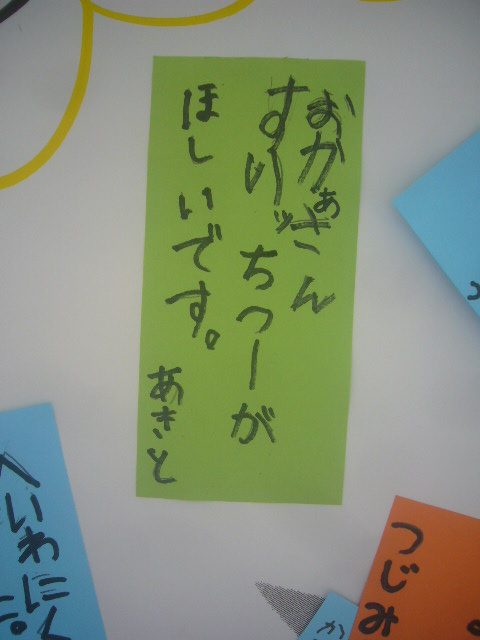 おかあさん
すいッちつーが
ほしいです。
あきと
へいわに
つじみ
か